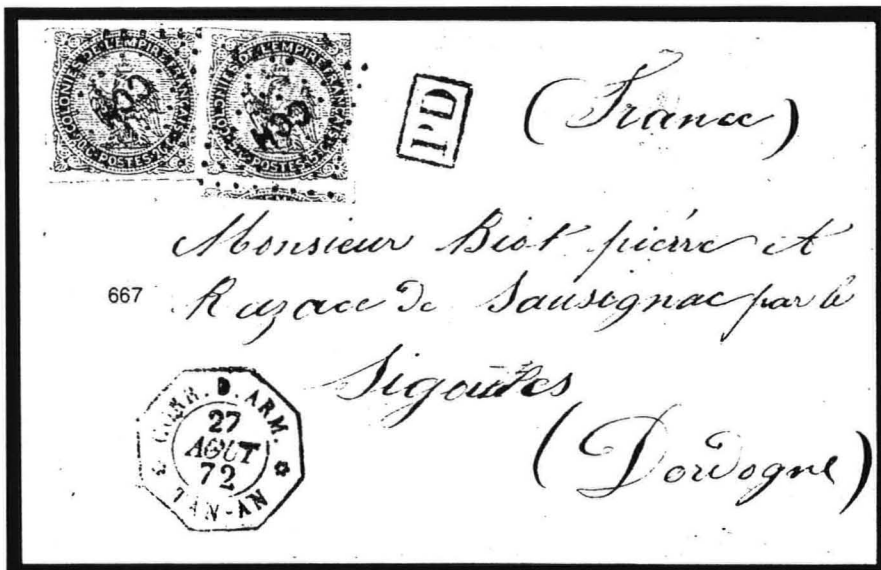 COLONIES DE L'EMPIRE FRANÇAIS
POSTES
COLONIES DE L'EMPIRE FRANÇAIS
POSTES
PD
(France)
Monsieur Biot pierre A
Razac de Sausignac par le
667
Sigoules
(Dordogne)
CORR. D. ARM.
27
AOUT
72
TAN-AN